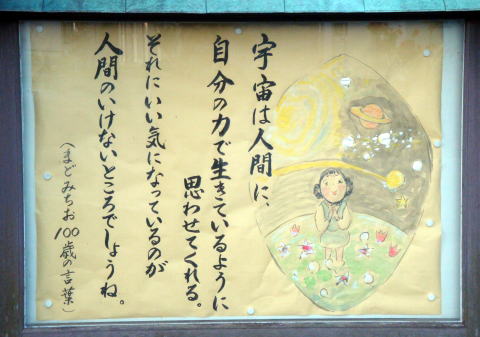 宇宙は人間に、
自分の力で生きているように
思わせてくれる。
それにいい気になっているのが
人間のいけないところでしょうね。
（まどみちお100歳の言葉）